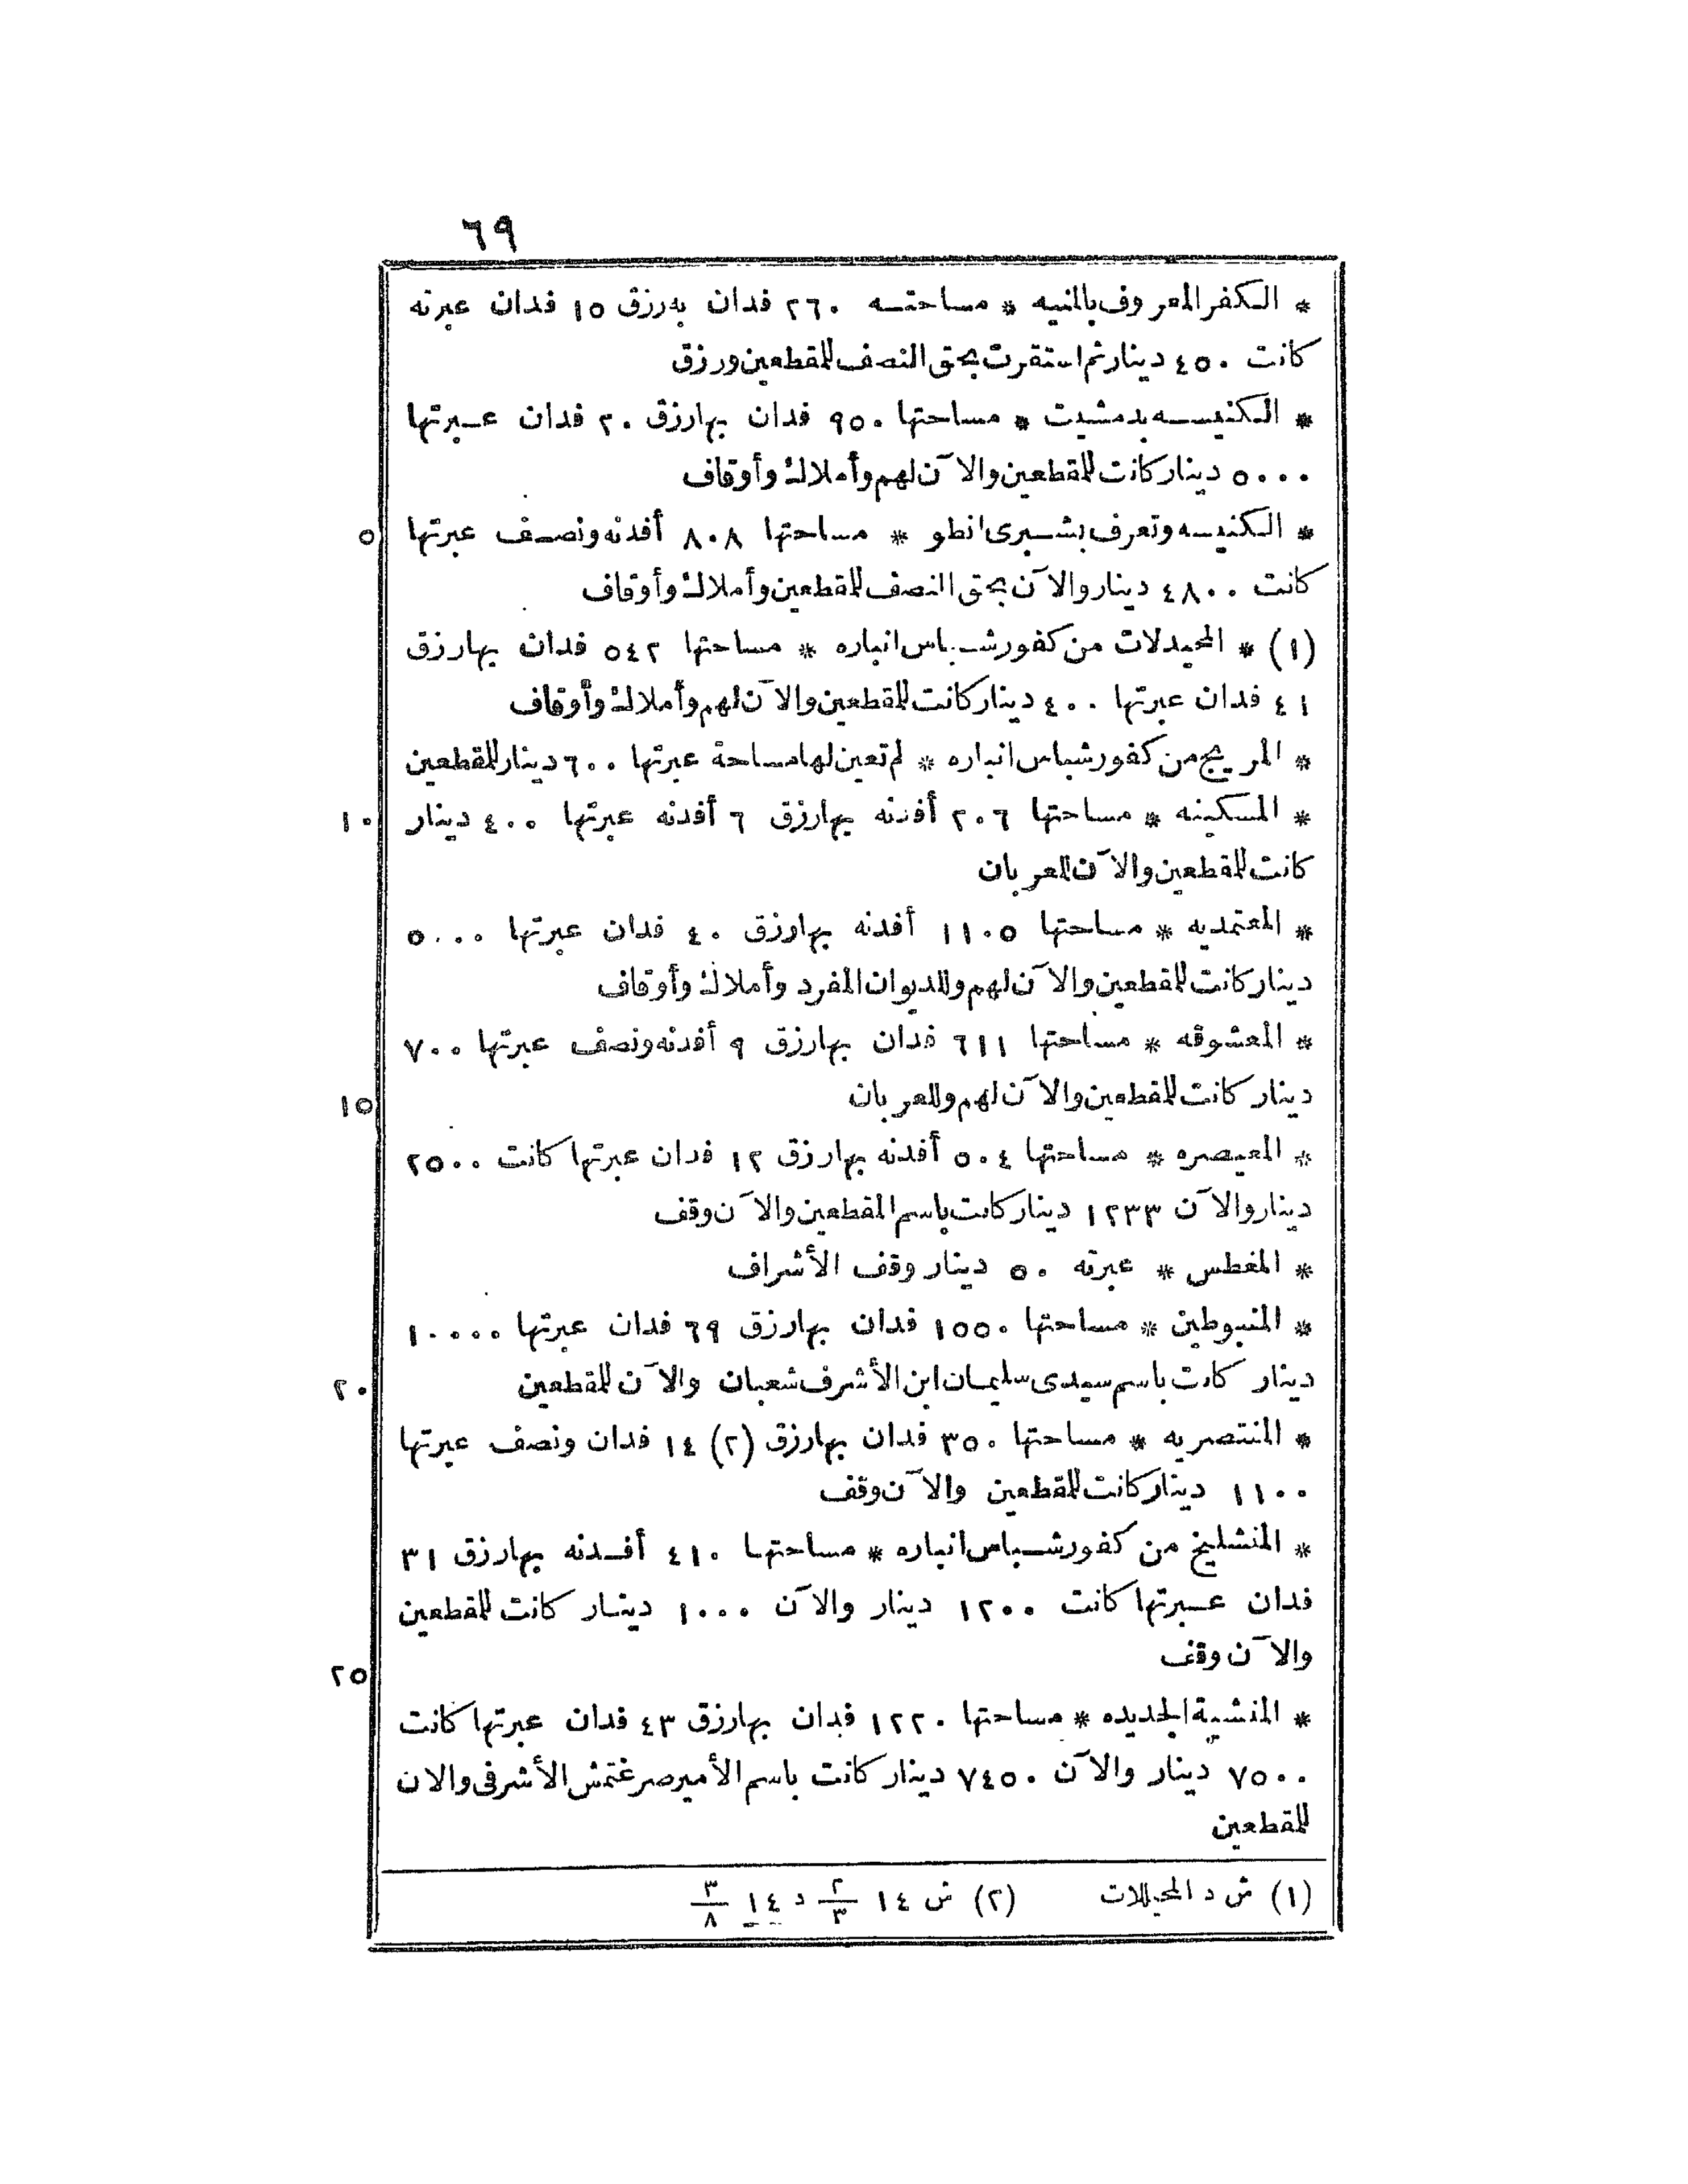 ٦٩
* الكفر المعروف بالمنيه * مساحته ٢٦٠ فدان به رزق ١٥ فدان عبرته
كانت ٤٥٠ دينار ثم استقرت بحق النصف للمقطعين ورزق
* الكنيسه بدمشيت * مساحتها ٩٥٠ فدان بها رزق ٢٠ فدان عبرتها
٥٠٠٠ دينار كانت للمقطعين والآن لهم وأملاك وأوقاف
٥ * الكنيسه وتعرف بشبرى انطو * مساحتها ٨٠٨ أفدنه ونصف عبرتها
كانت ٤٨٠٠ دينار والآن بحق النصف للمقطعين وأملاك وأوقاف
(١) * المحيدلات من كفور شباس انباره * مساحتها ٥٤٢ فدان بها رزق
٤١ فدان عبرتها ٤٠٠ دينار كانت للمقطعين والآن لهم وأملاك وأوقاف
* المريج من كفور شباس انباره * لم تعين لها مساحة عبرتها ٦٠٠ دينار للمقطعين
١٠ * المسكينه * مساحتها ٢٠٦ أفدنه بها رزق ٦ أفدنه عبرتها ٤٠٠ دينار
كانت للمقطعين والآن للعربان
* المعتمديه * مساحتها ١١٠٥ أفدنه بها رزق ٤٠ فدان عبرتها ٥٠٠٠
دينار كانت للمقطعين والآن لهم وللديوان المفرد وأملاك وأوقاف
* المعشوقه * مساحتها ٦١١ فدان بها رزق ٩ أفدنه ونصف عبرتها ٧٠٠
١٥ دينار كانت للمقطعين والآن لهم وللعربان
* المعيصره * مساحتها ٥٠٤ أفدنه بها رزق ١٢ فدان عبرتها كانت ٢٥٠٠
دينار والآن ١٢٣٣ دينار كانت باسم المقطعين والآن وقف
* المغطس * عبرته ٥٠ دينار وقف الأشراف
* المنبوطين * مساحتها ١٥٥٠ فدان بها رزق ٦٩ فدان عبرتها ١٠٠٠٠
٢٠ دينار كانت باسم سيدى سليمان ابن الأشرف شعبان والآن للمقطعين
* المنتصريه * مساحتها ٣٥٠ فدان بها رزق (٢) ١٤ فدان ونصف عبرتها
١١٠٠ دينار كانت للمقطعين والآن وقف
* المنشليخ من كفور شباس انباره * مساحتها ٤١٠ أفدنه بها رزق ٣١
فدان عبرتها كانت ١٢٠٠ دينار والآن ١٠٠٠ دينار كانت للمقطعين
٢٥ والآن وقف
* المنشية الجديده * مساحتها ١٢٢٠ فدان بها رزق ٤٣ فدان عبرتها كانت
٧٥٠٠ دينار والآن ٧٤٥٠ دينار كانت باسم الأمير صرغتمش الأشرفى والان
للمقطعين
(١) ش د المحيللات (٢) ش ١٤ ٢/٣ د ١٤ ٣/٨